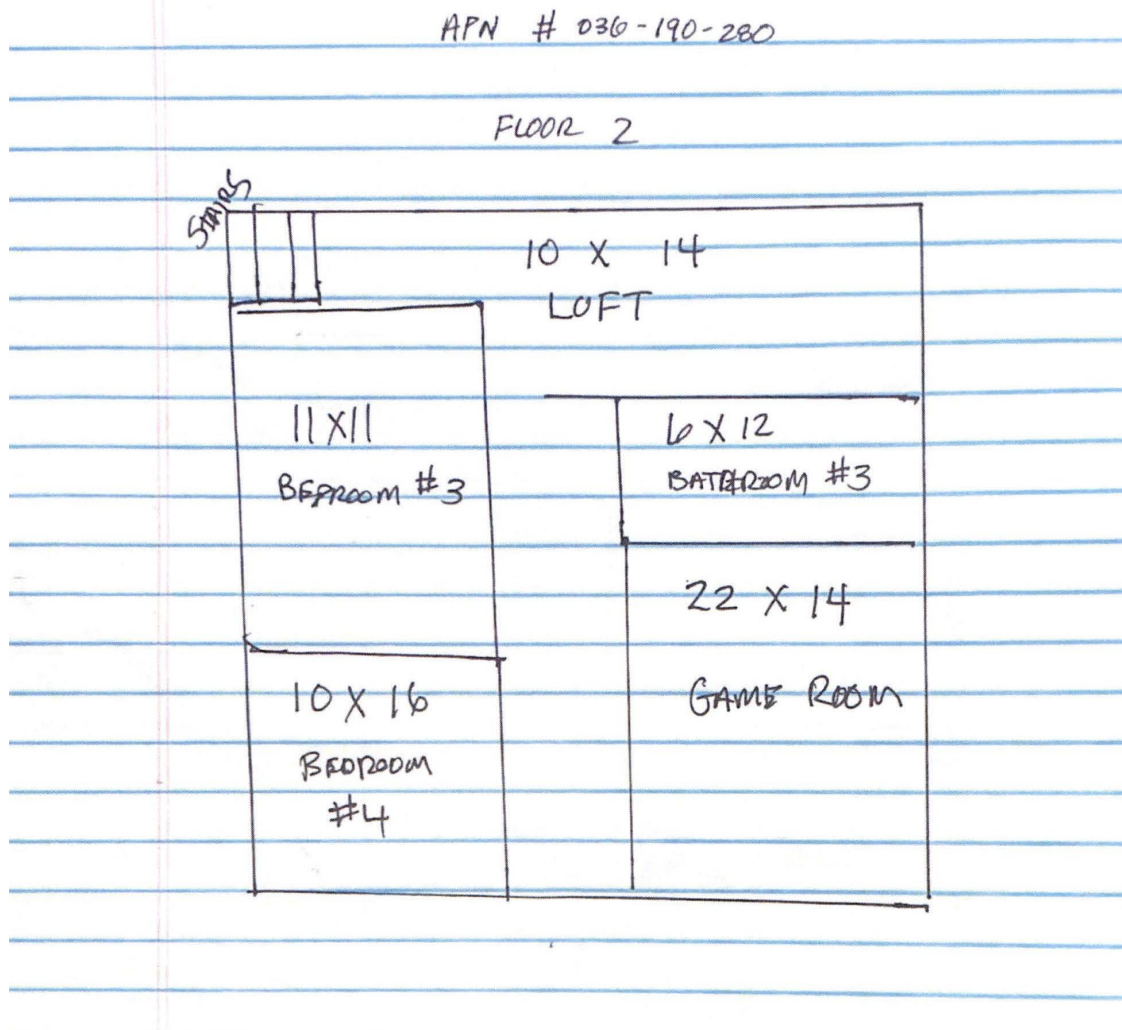 APN # 036-190-280
FLOOR 2
STAIRS
10 X 14
LOFT
11 X 11
BEDROOM #3
6 X 12
BATHROOM #3
22 X 14
GAME ROOM
10 X 16
BEDROOM
#4